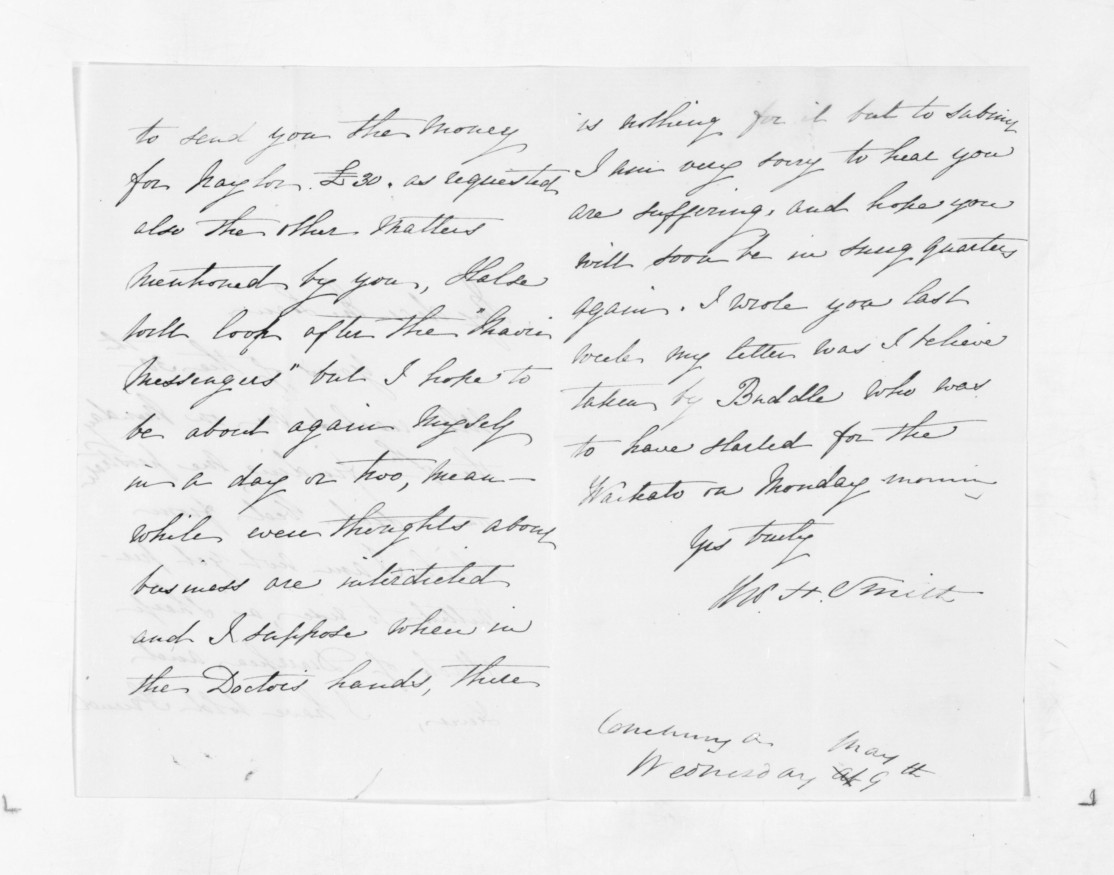 to send you the money
for Naylor £30. as requested
also the other matters
mentioned by you, Halse
will look after the "Maori
Messengers" but I hope to
be about again myself
in a day or two, mean-
while even thoughts about
business are interdicted
and I suppose when in
the Doctors hands, there
is nothing for it but to submit
I am very sorry to hear you
are suffering, and hope you
will soon be in snug quarters
again. I wrote you last
week my letter was I believe
taken by Buddle who was
to have started for the
Waikato on Monday morning
Yrs truly
Thos. H. Smith
May
Wednesday 9th